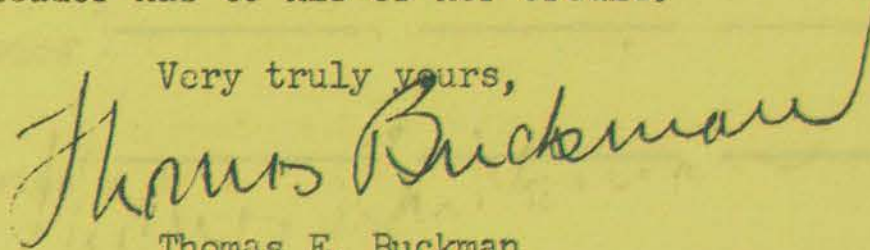 Very truly yours,
Thomas Buckman
Thomas E. Buckman